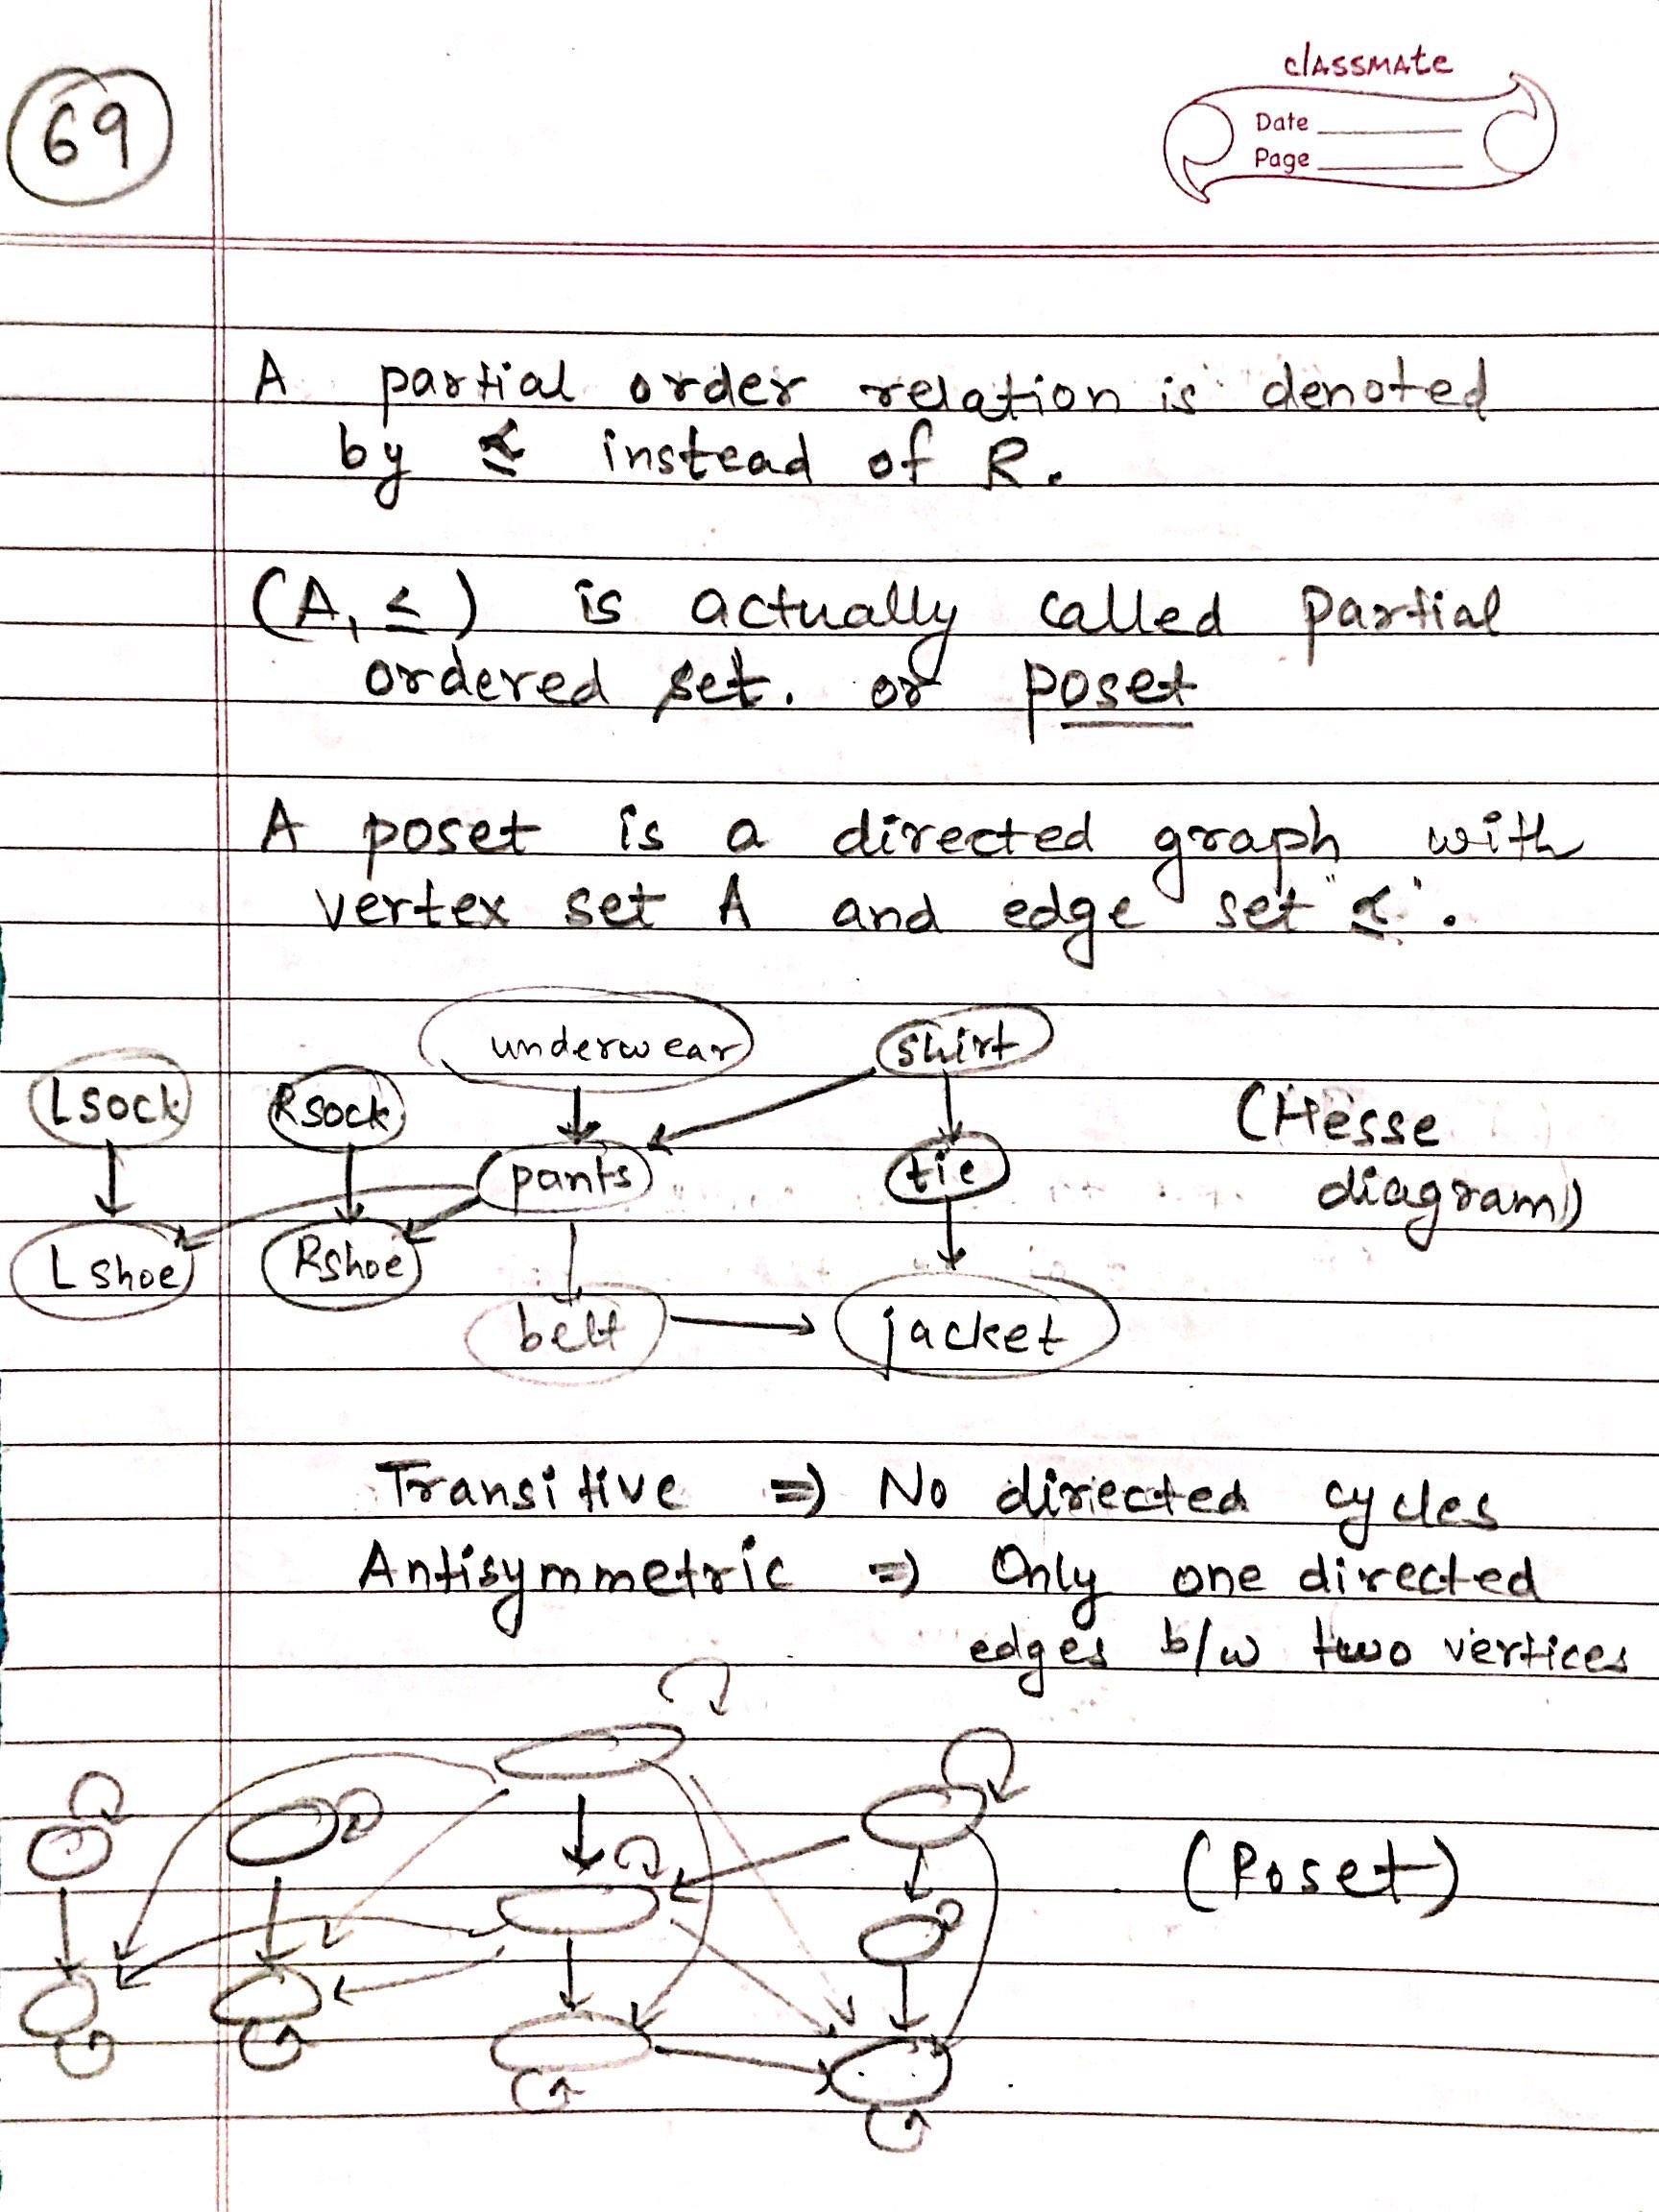 69
classmate
Date
Page
A partial order relation is denoted
by ⪯ instead of R.
(A, ≤) is actually called partial
ordered set. or poset
A poset is a directed graph with
vertex set A and edge set "⪯".
underwear shirt
Lsock Rsock (Hesse
pants tie diagram)
Lshoe Rshoe
belt jacket
Transitive => No directed cycles
Antisymmetric => Only one directed
edges b/w two vertices
(Poset)